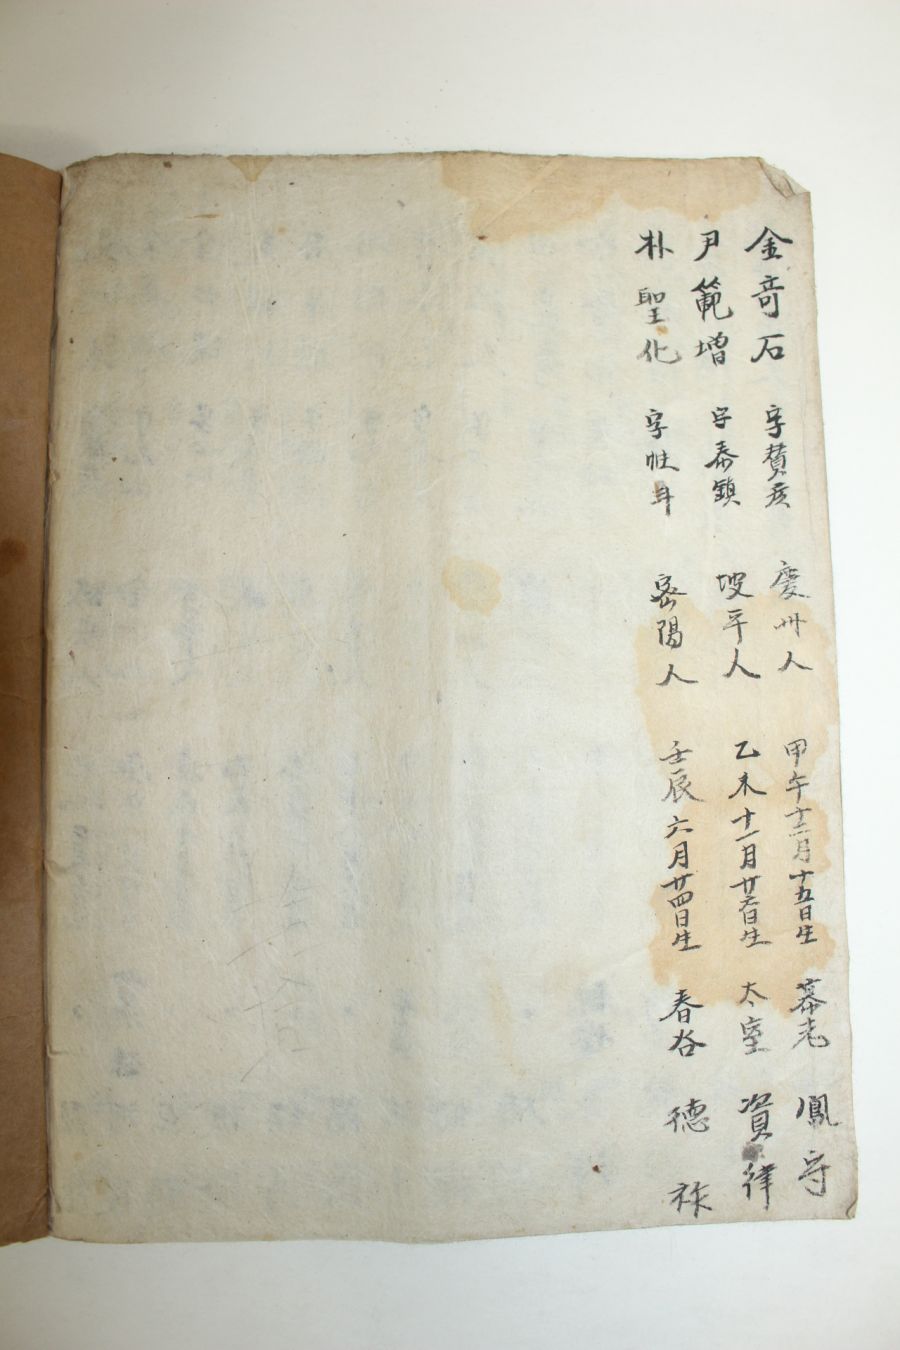 金奇石 字賛彦 慶州人 甲午十二月十五日生 慕老 鳳守
尹範增 字泰鎭 坡平人 乙未十一月廿六日生 太室 資律
朴聖化 字 密陽人 壬辰六月廿四日生 春谷 德祚